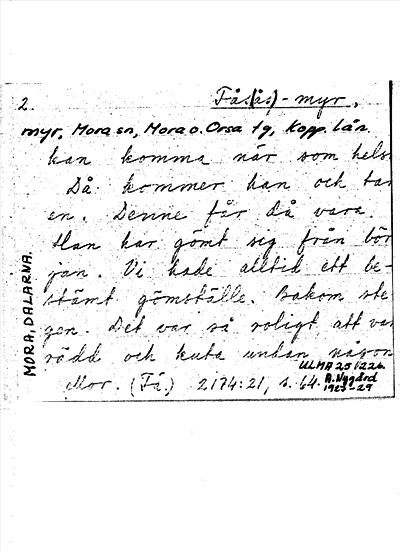 2. Få(ås)-myr,
myr, Mora sn, Mora o. Orsa tg, Kopp. län.
kan komma när som hels
Då kommer han och tar
en. Denne får då vara.
Han har gömt sig från bör
jan. Vi hade alltid ett be-
stämt gömställe. Bakom ste-
gen. Det var så roligt att va
rädd och kuta undan någon
Mor. (Få.) 2174:21, s. 64.
ULMA 25 1226
A. Nygård
1927-29
MORA, DALARNA.